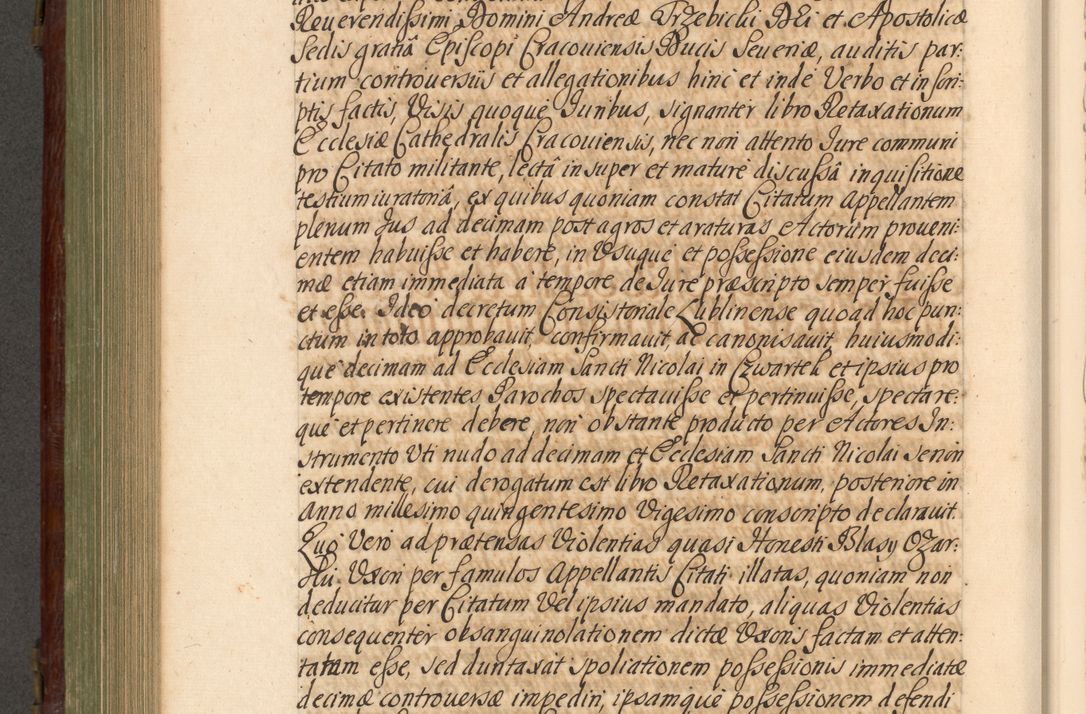 Reuerendissimi Domini Andreæ Trzebicki DEi et Apostolicæ
sedis gratiâ Episcopi Cracouiensis Ducis Seueriæ, auditis par:
tium controuersiis et allegationibus hinc et inde Verbo et in scri:
ptis factis, Visis quoque Iuribus, signanter libro Retaxationum
Ecclesiæ Cathedralis Cracouiensis, nec non attento Iure communi
pro Citato militante, lectâ insuper et mature discussâ inquisitione
testium iuratoriâ, ex quibus quoniam constat Citatum Appellantem
plenum Jus ad decimam post agros et araturas Actorum proueni:
entem habuisse et habere, in Vsuque et possessione eiusdem deci:
mæ etiam immediata à tempore de Iure præscripto semper fuisse
et esse. Ideo decretum Consistoriale Lublinense quoad hoc pun:
ctum in toto approbauit, confirmauit, ac canonisauit, huiusmodi:
que decimam ad Ecclesiam Sancti Nicolai in Czwartek et ipsius pro
tempore existentes Parochos spectauisse et pertinuisse, spectare:
que et pertinere debere, non obstante producto per Actores In:
strumento Vti nudo ad decimam et Ecclesiam Sancti Nicolai se non
extendente, cui derogatum est libro Retaxationum, posteriore in
anno millesimo quingentesimo Vigesimo conscripto declarauit.
Quo Vero ad prætensas Violentias quasi Honesti Blasÿ Ozar:
ski Vxori per famulos Appellantis Citati illatas, quoniam non
deducitur per Citatum Vel ipsius mandato, aliquas Violentias
consequenter obsanguinolationem dictæ Vxoris factam et atten:
tatam esse, sed duntaxat spoliationem possessionis immediatæ
decimæ controuersæ impediri, ipsamque possessionem defendi